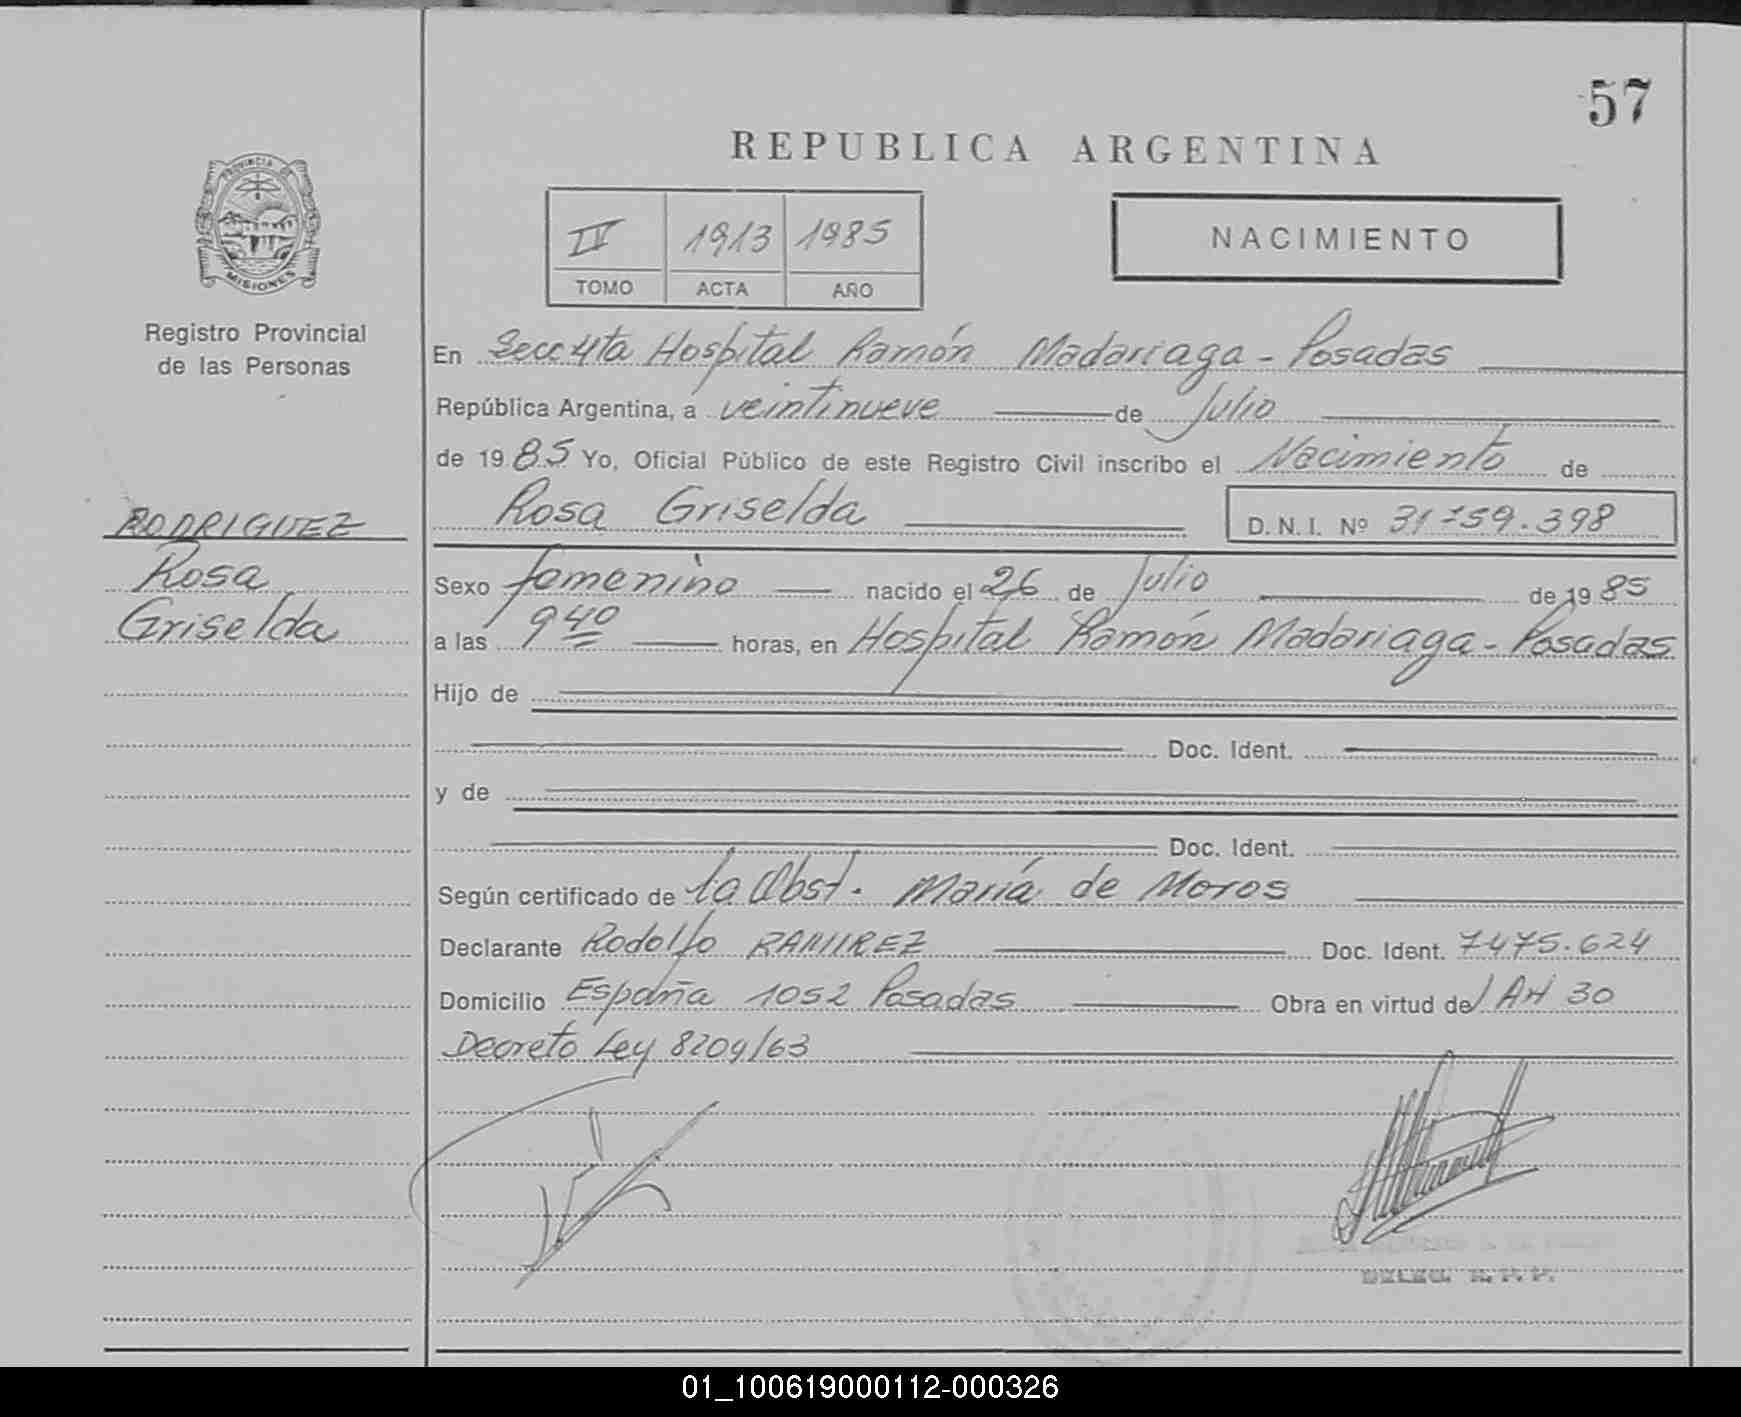 57
REPUBLICA ARGENTINA
PROVINCIA DE
MISIONES
Registro Provincial
de las Personas
IV 1913 1985
TOMO ACTA AÑO
NACIMIENTO
En Secc 4ta Hospital Ramón Madariaga - Posadas
República Argentina, a veintinueve de Julio
de 1985 Yo, Oficial Público de este Registro Civil inscribo el Nacimiento de
Rosa Griselda D. N. I. Nº 31759.398
RODRIGUEZ
Rosa
Griselda
Sexo femenino nacido el 26 de Julio de 1985
a las 9 40 horas, en Hospital Ramón Madariaga - Posadas
Hijo de
Doc. Ident.
y de
Doc. Ident.
Según certificado de la Obst. María de Moros
Declarante Rodolfo RAMIREZ Doc. Ident. 7475.624
Domicilio España 1052 Posadas Obra en virtud de Art 30
Decreto Ley 8204/63
DELEG. R. P. P.
01_100619000112-000326